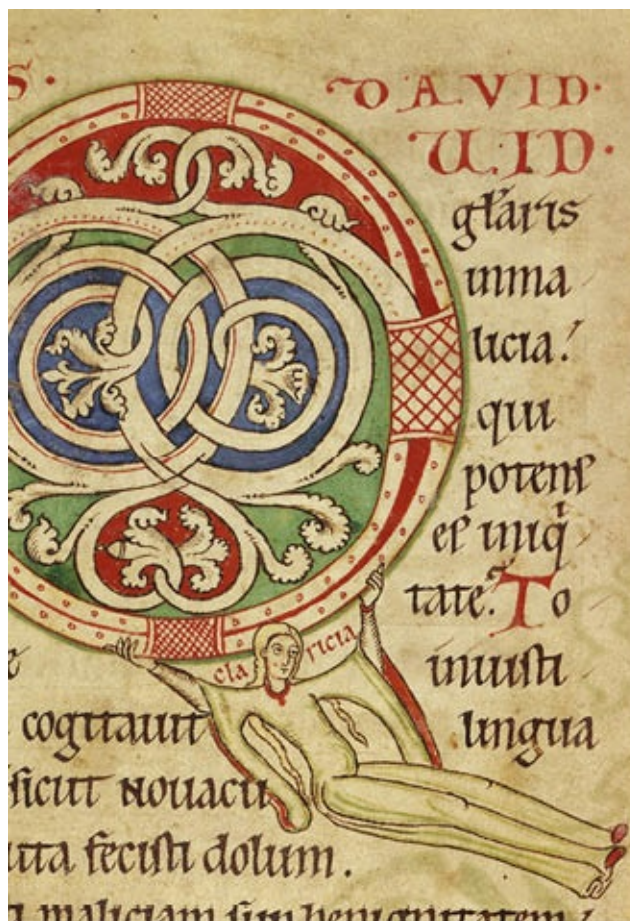 S. DAVID.
UID.
gl̄aris
inma
licia.
qui
potens
es iniq
tate. To
claricia
iniusti
cogitauit lingua
sicut nouacu
uta fecisti dolum.
maliciam sup benignitatem